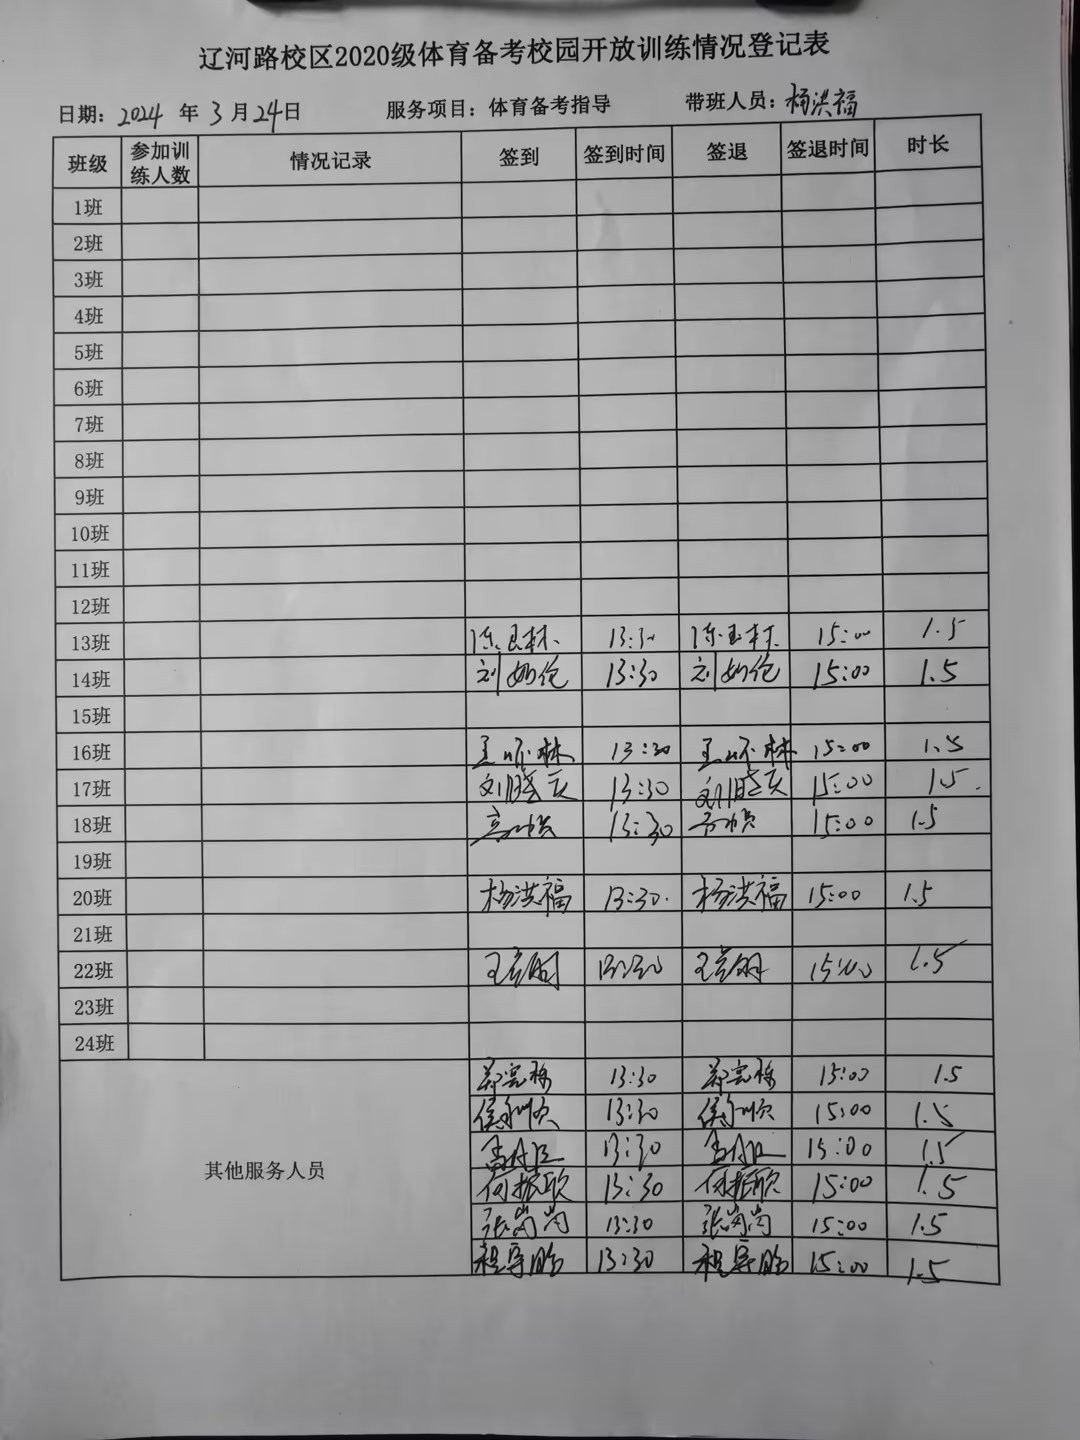 辽河路校区2020级体育备考校园开放训练情况登记表
日期：2024 年 3 月 24日 服务项目：体育备考指导 带班人员：杨洪福
班级 参加训练人数 情况记录 签到 签到时间 签退 签退时间 时长
1班
2班
3班
4班
5班
6班
7班
8班
9班
10班
11班
12班
13班 13:30 15:00 1.5
14班 13:30 15:00 1.5
15班
16班 13:30 15:00 1.5
17班 13:30 15:00 1.5
18班 13:30 15:00 1.5
19班
20班 杨洪福 13:30 杨洪福 15:00 1.5
21班
22班 13:30 15:00 1.5
23班
24班
其他服务人员
13:30 15:00 1.5
13:30 15:00 1.5
13:30 15:00 1.5
何振欧 13:30 何振欧 15:00 1.5
张岗岗 13:30 张岗岗 15:00 1.5
13:30 15:00 1.5